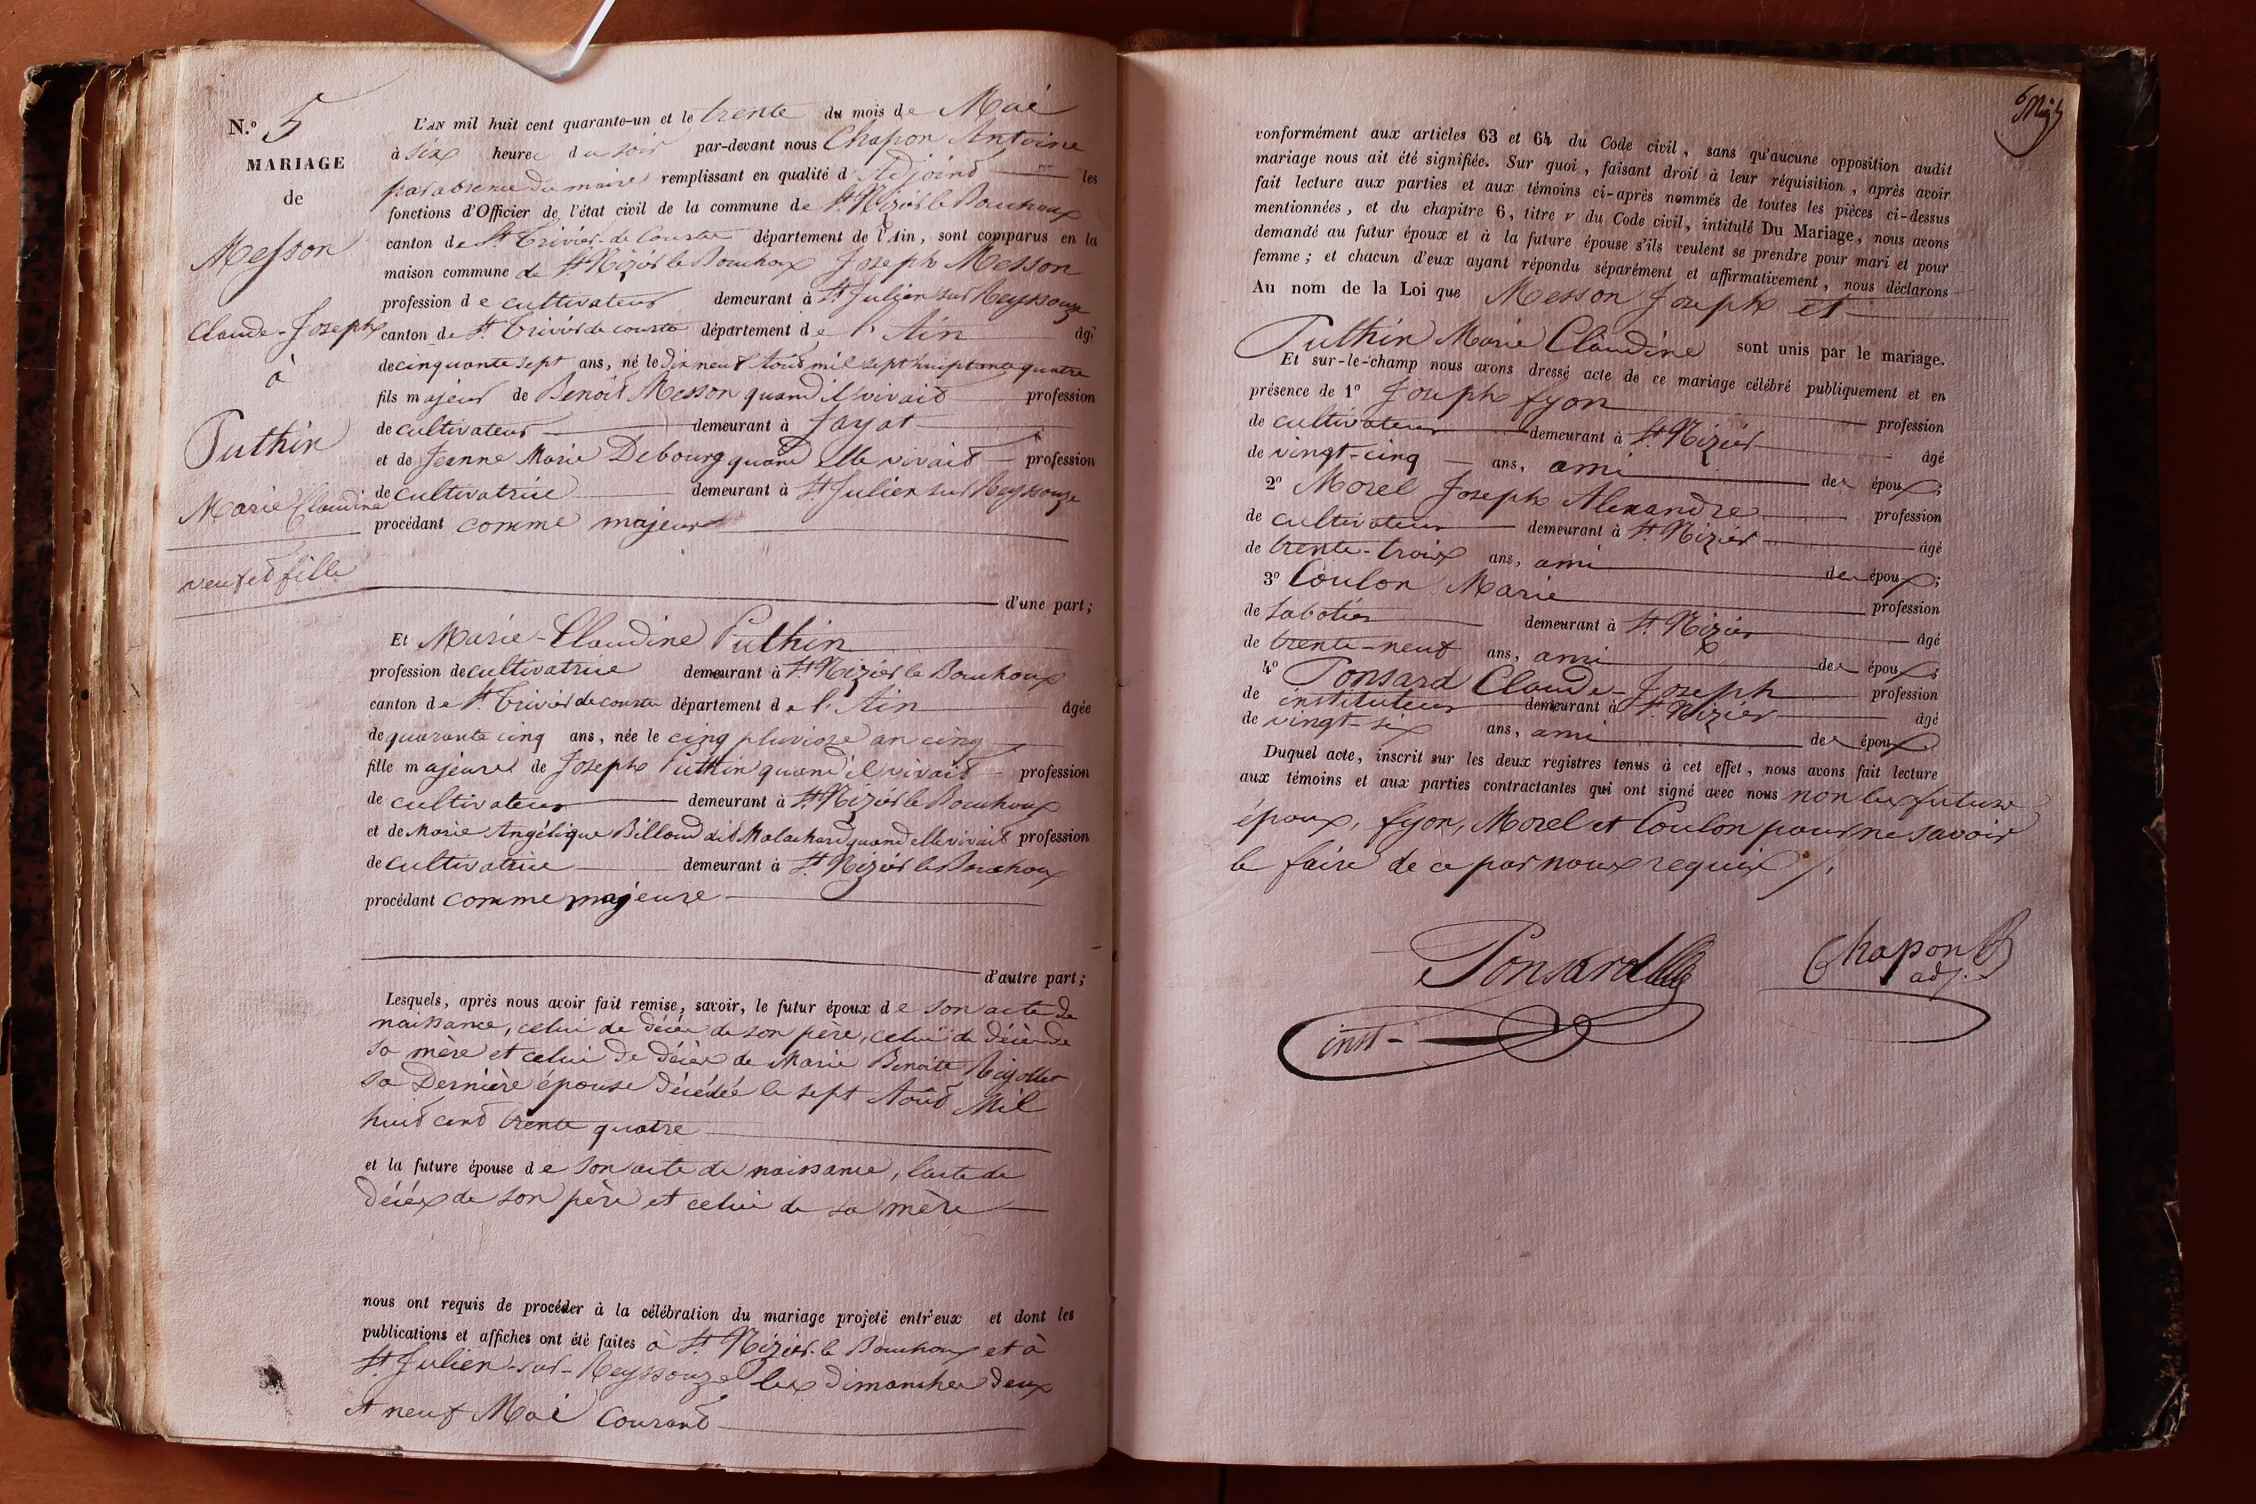 N.º 5
MARIAGE
de
Messon
Claude-Joseph
à
Puthin
Marie Claudine
veuf et fille
L'AN mil huit cent quarante-un et le trente du mois de Mai
à six heures du soir par-devant nous Chapon Antoine
par absence du maire remplissant en qualité d'Adjoint les
fonctions d'Officier de l'état civil de la commune de St. Nizier le Bouchoux
canton de St. Trivier-de Courtes département de l'Ain, sont comparus en la
maison commune de St Nizier le Bouchoux Joseph Messon
profession de cultivateur demeurant à St Julien sur Reyssouze
canton de St. Trivier de courtes département de l'Ain âgé
de cinquante sept ans, né le dix neuf Août mil sept huiptante quatre
fils majeur de Benoît Messon quand il vivait profession
de cultivateur demeurant à Jayat
et de Jeanne Marie Debourg quand elle vivait profession
de cultivatrice demeurant à St Julien sur Reyssouze
procédant comme majeur
d'une part;
Et Marie-Claudine Puthin
profession de cultivatrice demeurant à St Nizier le Bouchoux
canton de St. Trivier de courtes département de l'Ain âgée
de quarante cinq ans, née le cinq pluviose an cinq
fille majeure de Joseph Puthin quand il vivait profession
de cultivateur demeurant à St Nizier le Bouchoux
et de Marie Angélique Billoud dit Malachard quand elle vivait profession
de cultivatrice demeurant à St. Nizier le Bouchoux
procédant comme majeure
d'autre part;
Lesquels, après nous avoir fait remise, savoir, le futur époux de son acte de
naissance, celui de décès de son père, celui de décès de
sa mère et celui de décès de Marie Benoite
sa Dernière épouse décédée le sept Août Mil
huit cent trente quatre
et la future épouse de son acte de naissance, l'acte de
décès de son père et celui de sa mère
nous ont requis de procéder à la célébration du mariage projeté entr'eux et dont les
publications et affiches ont été faites à St. Nizier-le Bouchoux et à
St. Julien-sur-Reyssouze les dimanches deux
et neuf Mai Courant
conformément aux articles 63 et 64 du Code civil, sans qu'aucune opposition audit
mariage nous ait été signifiée. Sur quoi, faisant droit à leur réquisition, après avoir
fait lecture aux parties et aux témoins ci-après nommés de toutes les pièces ci-dessus
mentionnées, et du chapitre 6, titre v du Code civil, intitulé Du Mariage, nous avons
demandé au futur époux et à la future épouse s'ils veulent se prendre pour mari et pour
femme; et chacun d'eux ayant répondu séparément et affirmativement, nous déclarons
Au nom de la Loi que Messon Joseph et
Puthin Marie Claudine sont unis par le mariage.
Et sur-le-champ nous avons dressé acte de ce mariage célébré publiquement et en
présence de 1º Joseph fyon profession
de cultivateur demeurant à St. Nizier âgé
de vingt-cinq ans, ami des époux;
2º Morel Joseph Alexandre profession
de cultivateur demeurant à St. Nizier âgé
de trente-trois ans, ami des époux;
3º Coulon Marie profession
de Sabotier demeurant à St. Nizier âgé
de trente-neuf ans, ami des époux;
4º Ponsard Claude-Joseph profession
de instituteur demeurant à St. Nizier âgé
de vingt-six ans, ami des époux
Duquel acte, inscrit sur les deux registres tenus à cet effet, nous avons fait lecture
aux témoins et aux parties contractantes qui ont signé avec nous non les futurs
époux, fyon, Morel et Coulon pour ne savoir
le faire de ce par nous requis
Ponsard
inst-
Chapon
adj.